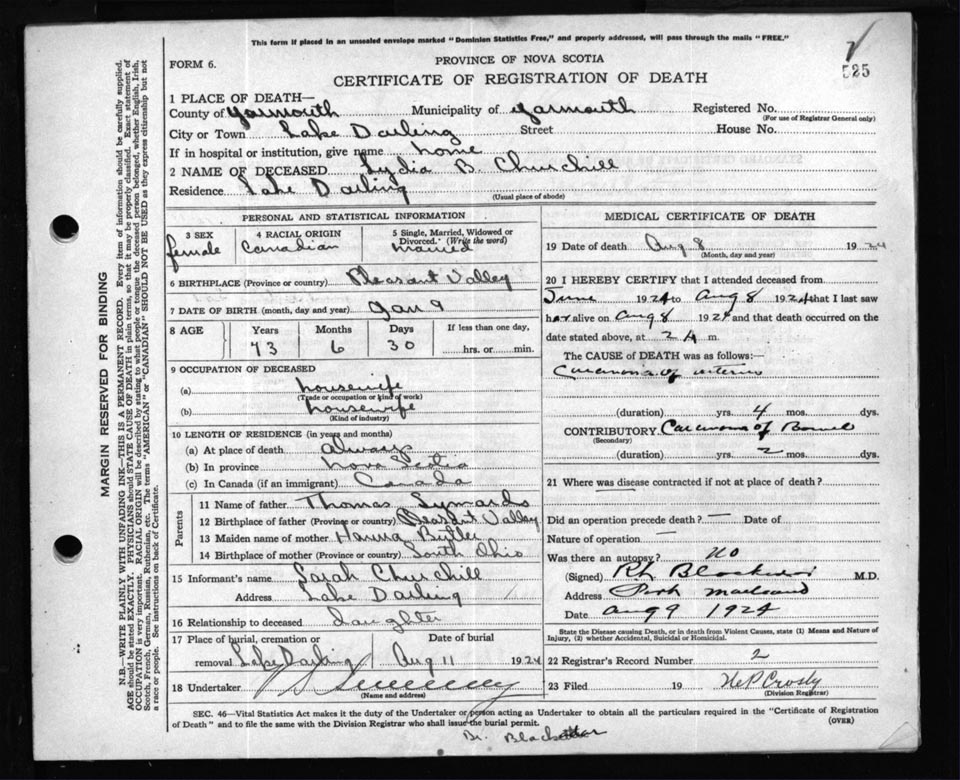 This form if placed in an unsealed envelope marked "Dominion Statistics Free," and properly addressed, will pass through the mails "FREE."
525
FORM 6.
PROVINCE OF NOVA SCOTIA
CERTIFICATE OF REGISTRATION OF DEATH
1 PLACE OF DEATH—
County of Yarmouth Municipality of Yarmouth Registered No.
(For use of Registrar General only)
City or Town Lake Darling Street House No.
If in hospital or institution, give name home
2 NAME OF DECEASED Lydia B. Churchill
Residence Lake Darling
(Usual place of abode)
PERSONAL AND STATISTICAL INFORMATION
3 SEX 4 RACIAL ORIGIN 5 Single, Married, Widowed or Divorced. (Write the word)
female Canadian married
6 BIRTHPLACE (Province or country) Pleasant Valley
7 DATE OF BIRTH (month, day and year) Jan 9
8 AGE Years Months Days If less than one day,
73 6 30 hrs. or min.
9 OCCUPATION OF DECEASED
(a) housewife
(Trade or occupation or kind of work)
(b) housewife
(Kind of industry)
10 LENGTH OF RESIDENCE (in years and months)
(a) At place of death always
(b) In province Nova Scotia
(c) In Canada (if an immigrant) Canada
Parents
11 Name of father Thomas
12 Birthplace of father (Province or country) Pleasant Valley
13 Maiden name of mother Butler
14 Birthplace of mother (Province or country) South Ohio
15 Informant's name Sarah Churchill
Address Lake Darling
16 Relationship to deceased daughter
17 Place of burial, cremation or removal Lake Darling Date of burial Aug 11 1924
18 Undertaker Sweeney
(Name and address)
MEDICAL CERTIFICATE OF DEATH
19 Date of death Aug 8 1924
(Month, day and year)
20 I HEREBY CERTIFY that I attended deceased from
June 1924 to Aug 8 1924 that I last saw
her alive on Aug 8 1924 and that death occurred on
date stated above, at 2 A m.
The CAUSE OF DEATH was as follows:—
of uterus
(duration) yrs. 4 mos. dys.
CONTRIBUTORY Carcinoma of Bowel
(Secondary)
(duration) yrs. 2 mos. dys.
21 Where was disease contracted if not at place of death?
Did an operation precede death? — Date of
Nature of operation —
Was there an autopsy? no
(Signed) M.D.
Address Port Maitland
Date Aug 9 1924
State the Disease causing Death, or in death from Violent Causes, state (1) Means and Nature of Injury, (2) whether Accidental, Suicidal or Homicidal.
22 Registrar's Record Number 2
23 Filed 19 Crosby
(Division Registrar)
SEC. 46—Vital Statistics Act makes it the duty of the Undertaker or person acting as Undertaker to obtain all the particulars required in the "Certificate of Registration
of Death" and to file the same with the Division Registrar who shall issue the burial permit. (OVER)
Dr.
MARGIN RESERVED FOR BINDING
N.B.—WRITE PLAINLY WITH UNFADING INK—THIS IS A PERMANENT RECORD. Every item of information should be carefully supplied.
AGE should be stated EXACTLY. PHYSICIANS should STATE CAUSE OF DEATH in plain terms, so that it may be properly classified. Exact statement of
OCCUPATION is very important. RACIAL ORIGIN will be described by stating to what people or tongue the deceased person belonged, whether English, Irish,
Scotch, French, German, Russian, Ruthenian, etc. The terms "AMERICAN" or "CANADIAN" SHOULD NOT BE USED as they express citizenship but not
a race or people. See instructions on back of Certificate.